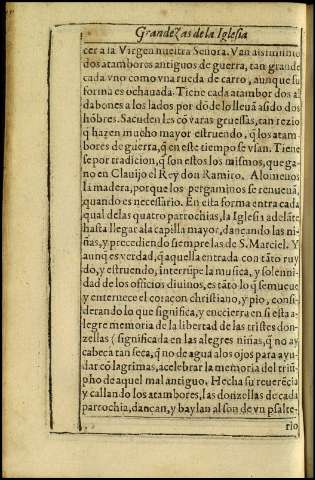 Grandezas de la Iglesia
cer a la Virgen nuestra Señora. Van assimismo
dos atambores antiguos de guerra, tan grande
cada vno como vna rueda de carro, aunque su
forma es ochauada. Tiene cada atambor dos al
dabones a los lados por dõde lo lleuã asido dos
hõbres. Sacuden les cõ varas gruessas, tan rezio
q̃ hazen mucho mayor estruendo, q̃ los atam
bores de guerra, q̃ en este tiempo se vsan. Tiene
se por tradicion, q̃ son estos los mismos, que ga
no en Clauijo el Rey don Ramiro. Alomenos
la madera, porque los pergaminos se renueuã,
quando es necessario. En esta forma entra cada
qual de las quatro parrochias, la Iglesia adelãte
hasta llegar a la capilla mayor, dançando las ni-
ñas, y precediendo siempre las de S. Marciel. Y
aunq̃ es verdad, q̃ aquella entrada con tãto ruy
do, y estruendo, interrũpe la musica, y solenni-
dad de los officios diuinos, es tãto lo q̃ semueue
y enternece el coraçon christiano, y pio, consi-
derando lo que significa, y encierra en si esta a-
legre memoria de la libertad de las tristes don-
zellas (significada en las alegres niñas, q̃ no ay
cabeça tan seca, q̃ no de agua a los ojos para ayu
dar cõ lagrimas, a celebrar la memoria del triũ-
pho de aquel mal antiguo. Hecha su reuerẽcia
y callando los atambores, las donzellas de cada
parrochia, dançan, y baylan al son de vn psalte-
rio